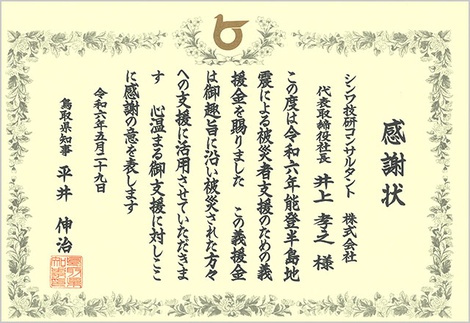 感謝状
シンワ技研コンサルタント 株式会社
代表取締役社長 井上 孝之 様
この度は令和六年能登半島地
震による被災者支援のための義
援金を賜りました この義援金
は御趣旨に沿い被災された方々
への支援に活用させていただきま
す 心温まる御支援に対しここ
に感謝の意を表します
令和六年五月二十九日
鳥取県知事 平井 伸治